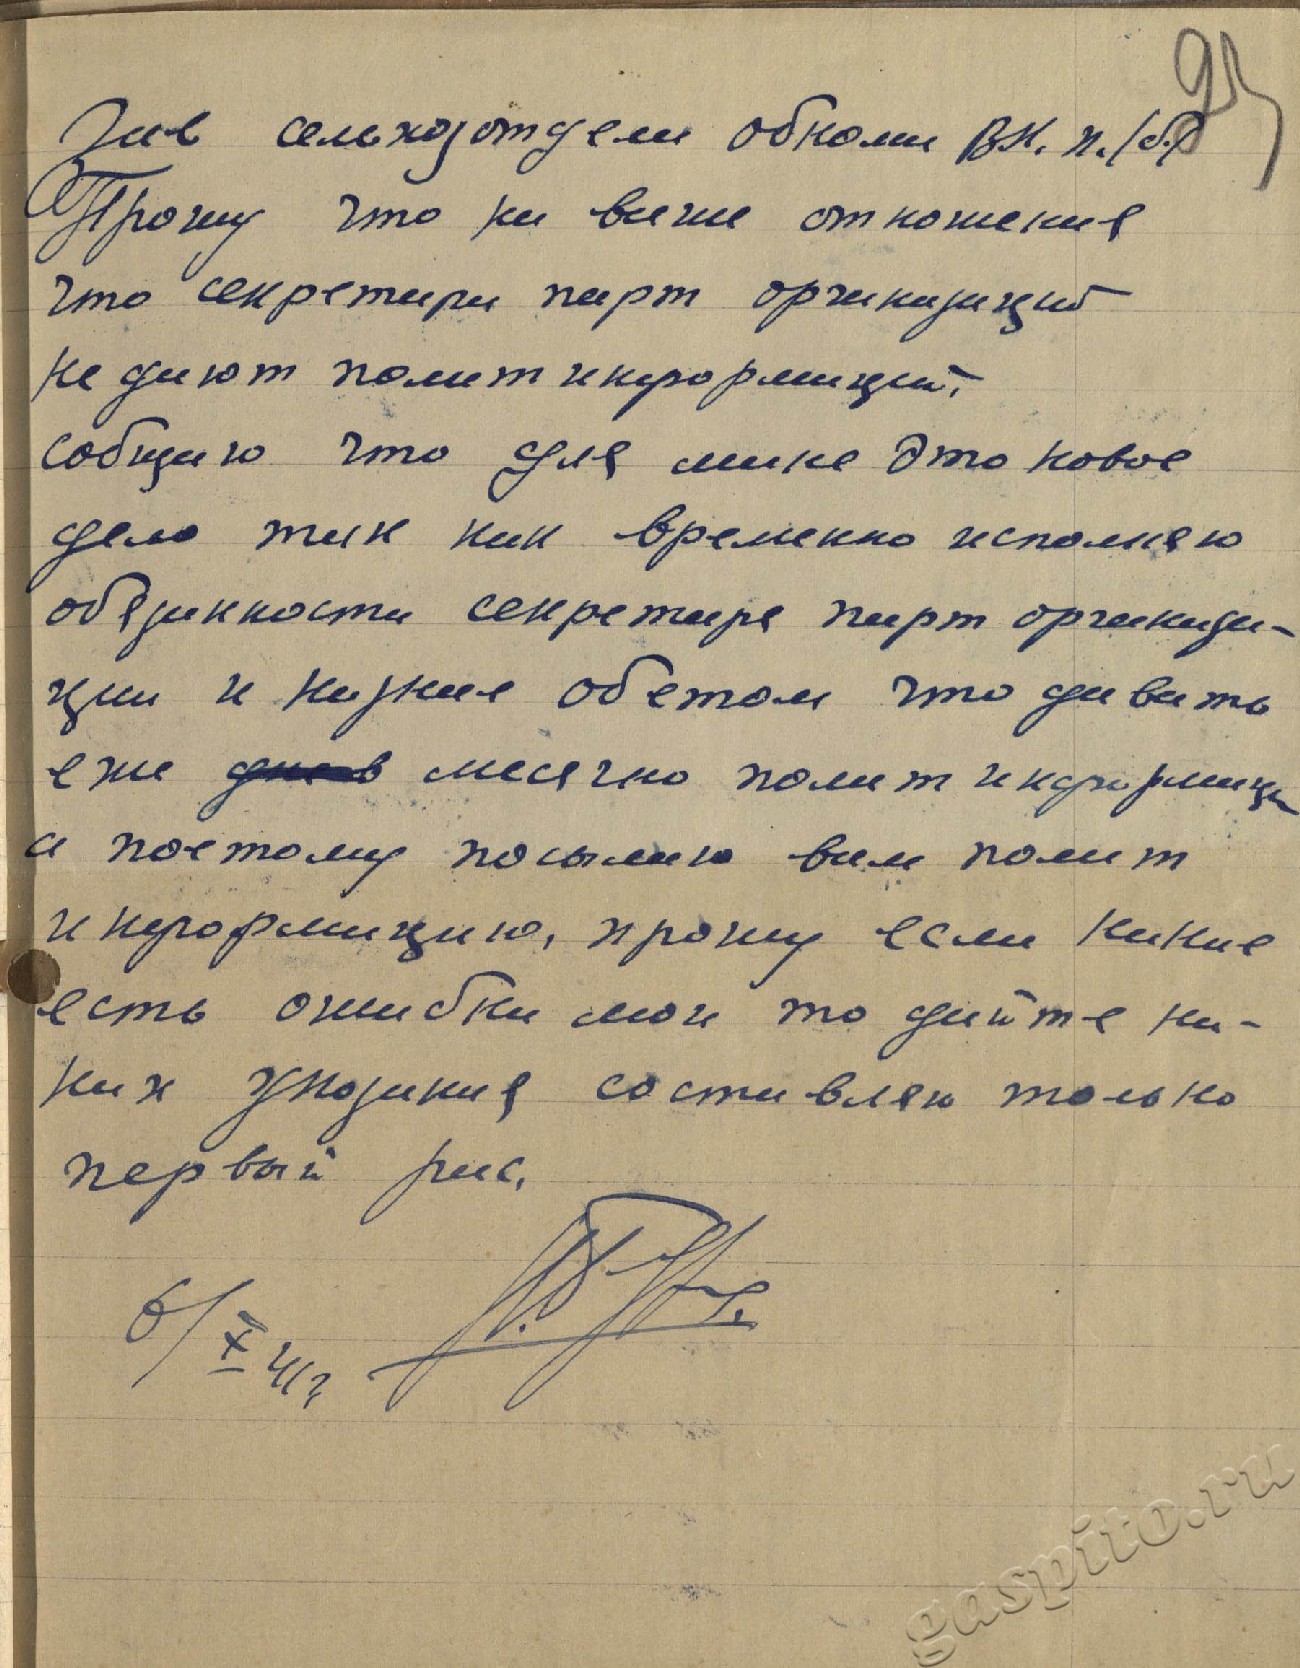 Зав сельхозотдела обкома ВК.п./б/
Прошу что на ваше отношения
что секретари парт организаций
не дают полит информаций,
собщаю что для мине это новое
дело так как временно исполняю
обязанности секретаря парт организа-
ции и не знал об етом что давать
еже днев месячно полит информаци
а поетому посылаю вам полит
информацию, прошу если какие
есть ошибки мои то дайте ка-
ких указания составляю только
первый рас.
6/X 41г
gaspito.ru